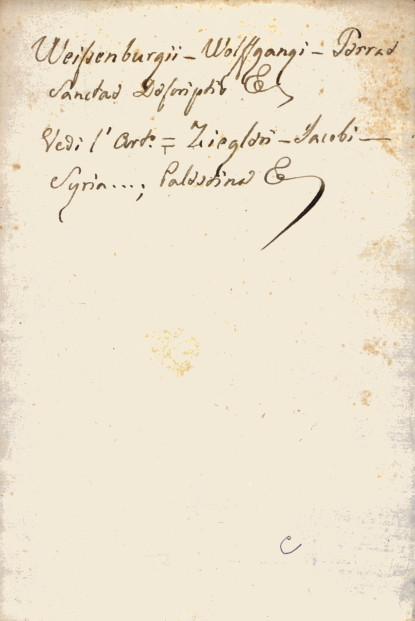 Weißenburgii - Wolffgangi - Terrae
Sanctae Descriptio &
Vedi l' Art.° = Ziegleri - Jacobi -
Syria....; Palestina &
C